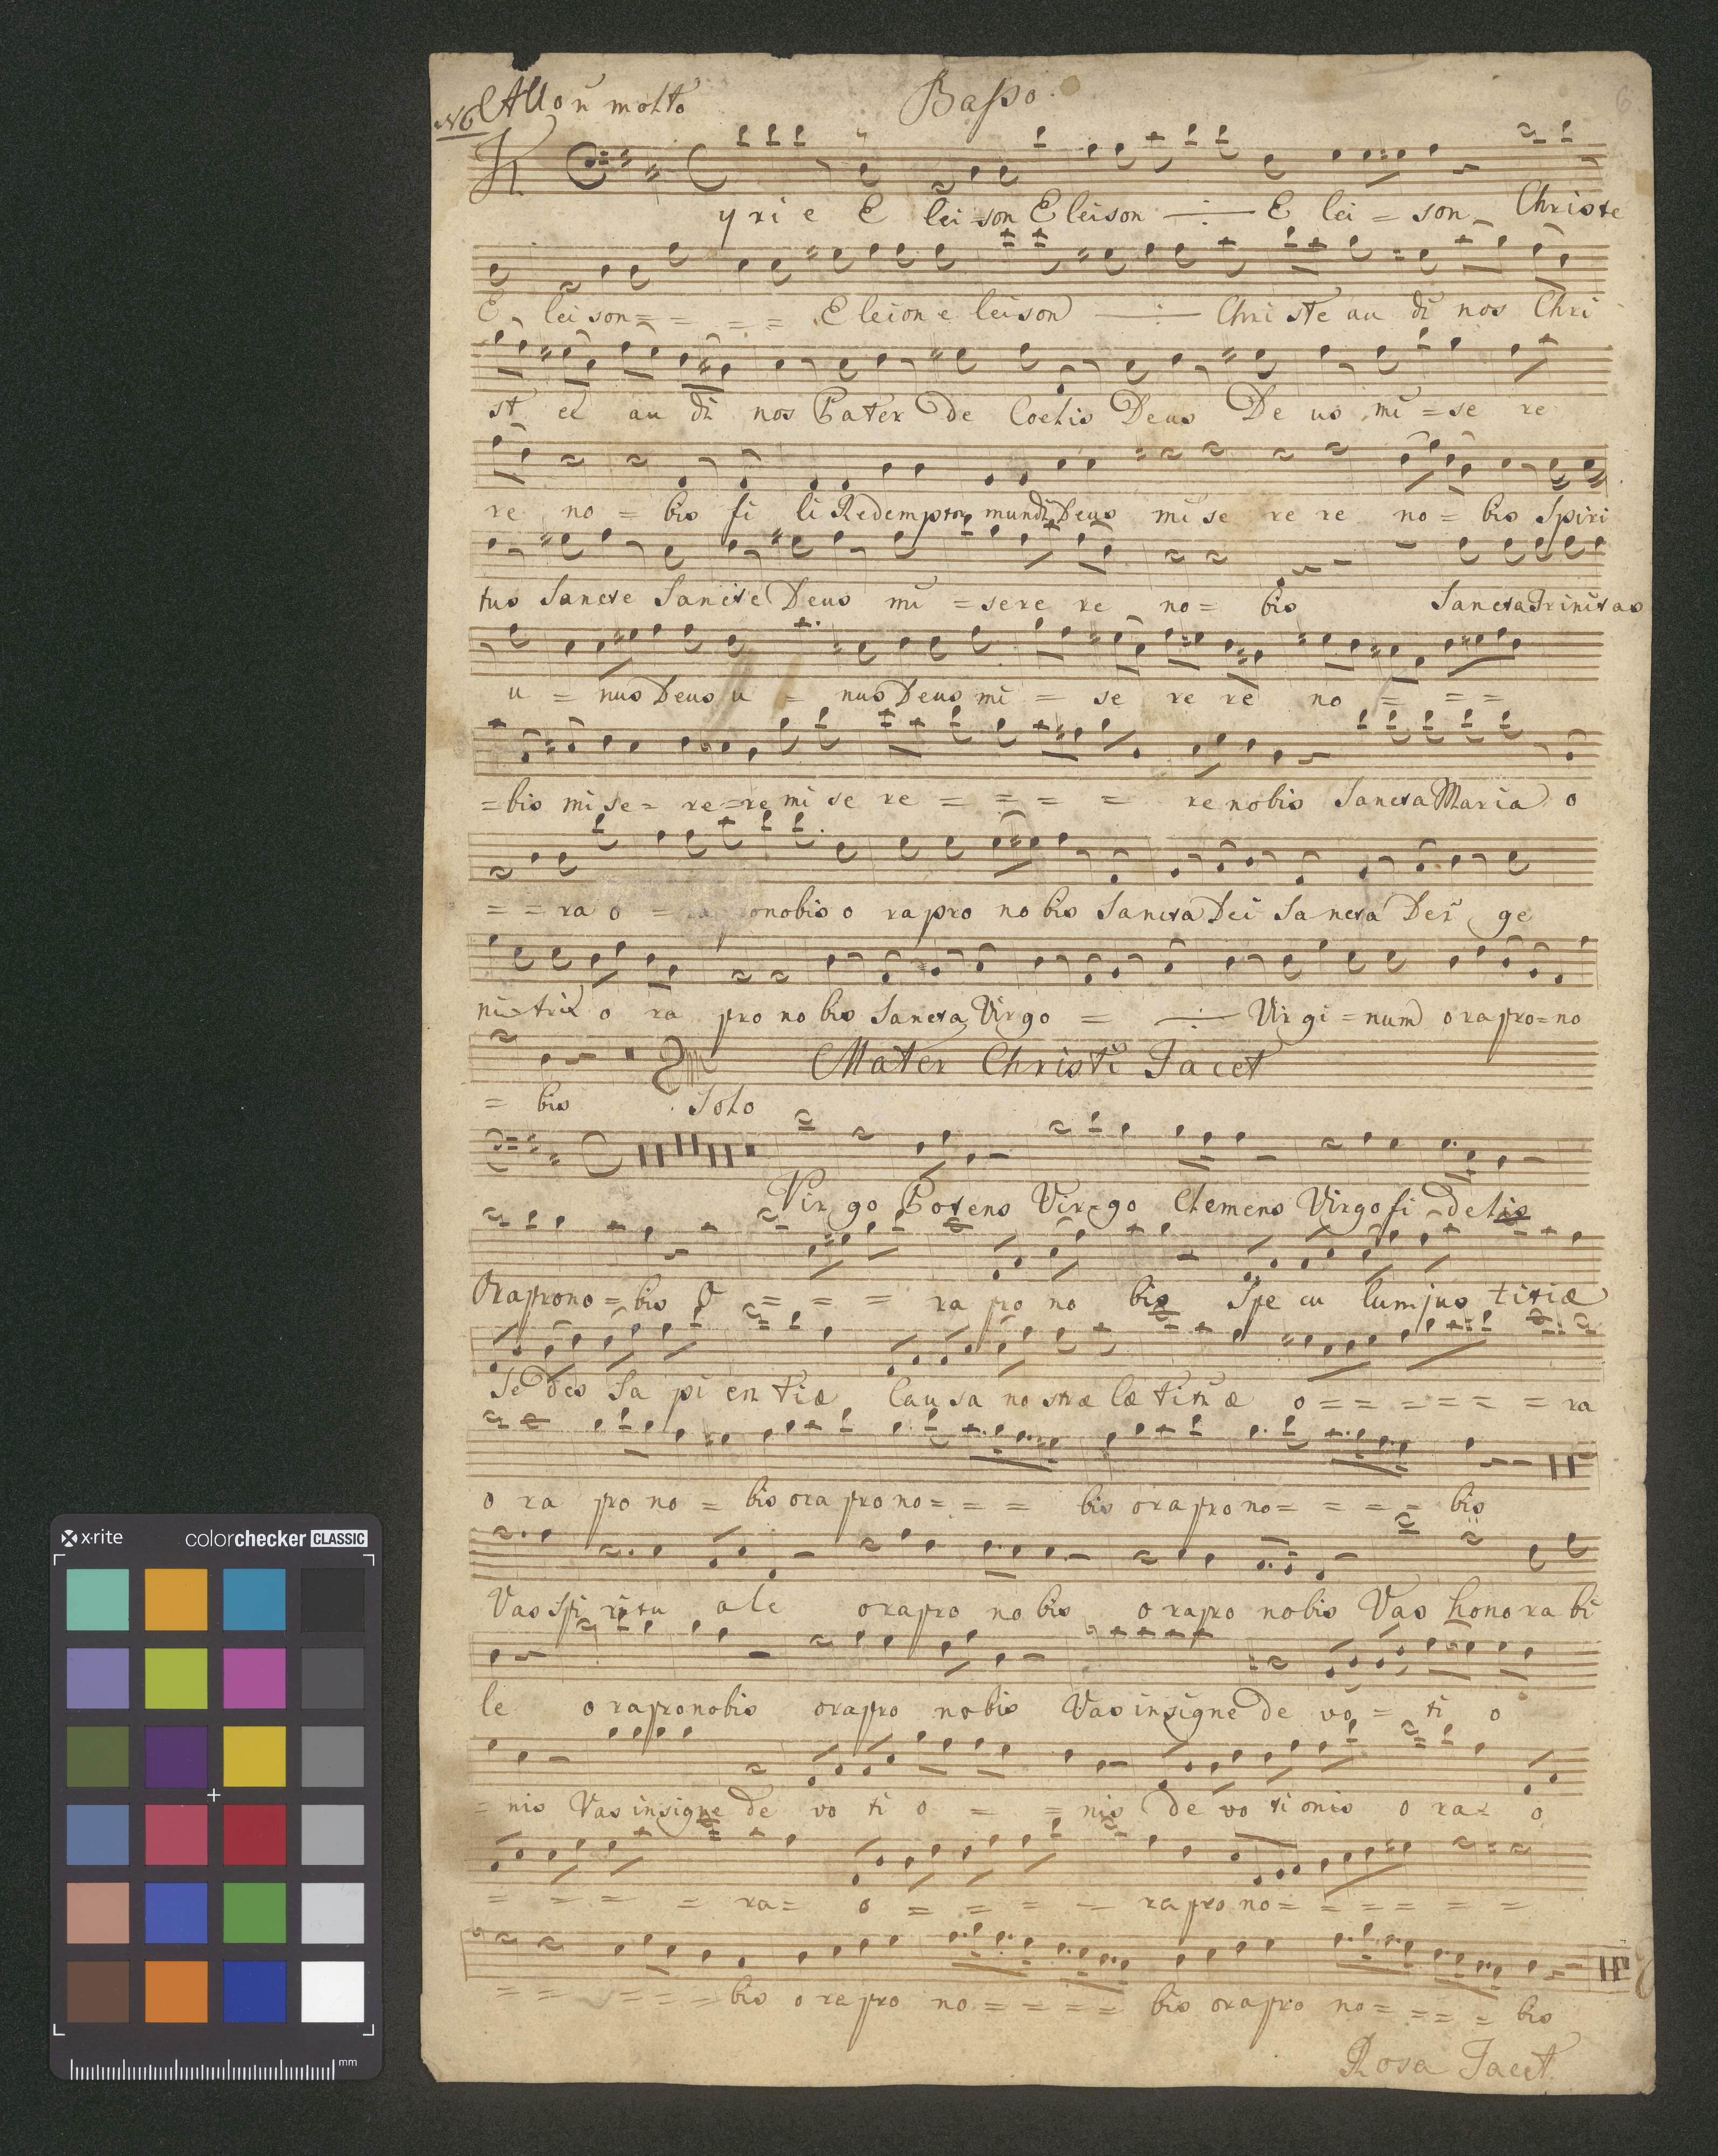 No Allo n molto Basso. 6
Kyrie E lei-son E leison E lei = son Christe
E lei son = = = = E leion e leison Christe au di nos Chri
st ee au di nos Pater de Coelis Deus De us mi = se re
re no = bis fi li Redemptor mundi Deus mi se re re no = bis Spiri
tus Sancte Sancte Deus mi = sere re no = bis Sancta Trinitas
u = nus Deus u = nus Deus mi = se re re no = = =
= bis mi se = re = re mi se re = = = = re nobis Sancta Maria o
= = ra o = ra pro nobis o ra pro no bis Sancta Dei Sancta Dei ge
ni-trix o ra pro no bis Sancta Virgo = Virgi = num o ra pro = no
Mater Christi Tacet
= bis Solo
Virgo Potens Vir-go Clemens Virgo fi - delis
Ora pro no = bis O = = = ra pro no bis Spe cu lum jus titiæ
Se des Sa pi en tiæ Causa no stræ læ titiæ o = = = = = = ra
o ra pro no = bis ora pro no = = = bis ora pro no = = = = bis
Vas spi ritu ale ora pro no bis o ra pro nobis Vas honora bi
le o ra pro nobis ora pro nobis Vas insigne de vo = ti o
= nis Vas insigne de vo ti o = = nis de vo ti onis o ra = o
= = = = ra = o = = = = ra pro no = = = = = =
= = = = = bis o re pro no = = = = bis ora pro no = = = = bis
Rosa Tacet
x-rite colorchecker CLASSIC
mm